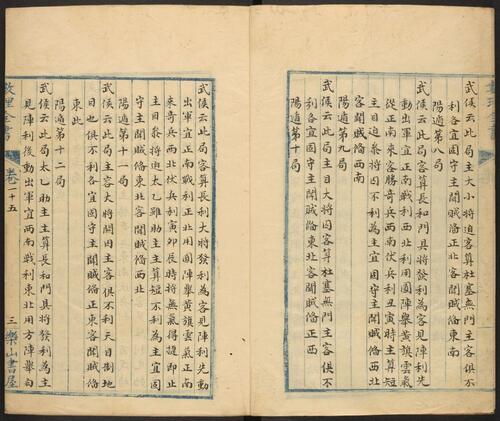 武侯云此局主大小將迫客算杜塞無門主客俱不
利各宜固守主聞賊偹客聞賊偹正北東南
陽遁第八局
武侯云此局客算長和門具將發利為客見陣利先
動出軍宜正南戰利西北利用圓陣舉黃旗雲氣
從正南來客勝奇兵西南伏兵利丑寅時主算短
主目迫衆將囚不利為主宜固守主聞賊偹西北
客聞賊偹西南
陽遁第九局
武侯云此局主目大將囚客算杜塞無門主客俱不
利各宜固守主聞賊偹東北客聞賊偹正西
陽遁第十局
武侯云此局客算長利大將發利為客見陣利先動
出軍宜正南戰利正北用圓陣舉黃旗雲氣正南
來奇兵西北伏兵利寅卯辰時將無氣得提即止
主目衆將迫太乙雖助主主算短不利為主宜固
守主聞賊偹東北客聞賊偹西北
陽遁第十一局
武侯云此局主客大將関囚主客俱不利天目掣地
目也俱不利各宜固守主聞賊偹正東客聞賊偹
東北
陽遁第十二局
武侯云此局太乙助主主算長和門具將發利為主
見陣利後動出軍宜西南戰利東北用方陣舉白
數理全書
卷
十五
三
樂山書屋